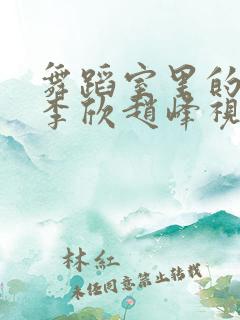 舞蹈室里的
李欣趙峰視
林紅
未经同意禁止转载